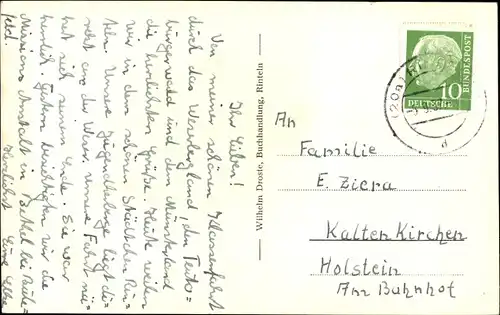 Ihr Lieben!
Von meiner schönen Klassenfahrt
durch das Weserbergland, den Teuto-
burgerwald und den Münsterland
die herzlichsten Grüße. Heute weilen
wir in dem schönen Städtchen Rin-
teln. Unsere Jugendherberge liegt di-
rekt an der Weser. Unsere Fahrt nä-
hert sich seinem Ende. Sie war
herrlich. Gestern besichtigten wir die
Missions Anstalt in Bethel bei Biele-
feld.
Herzlichst Eure
Wilhelm Droste, Buchhandlung, Rinteln
DEUTSCHE BUNDESPOST
10
(20a)
d
An
Familie
E. Ziera
Kalten Kirchen
Holstein
Am Bahnhof